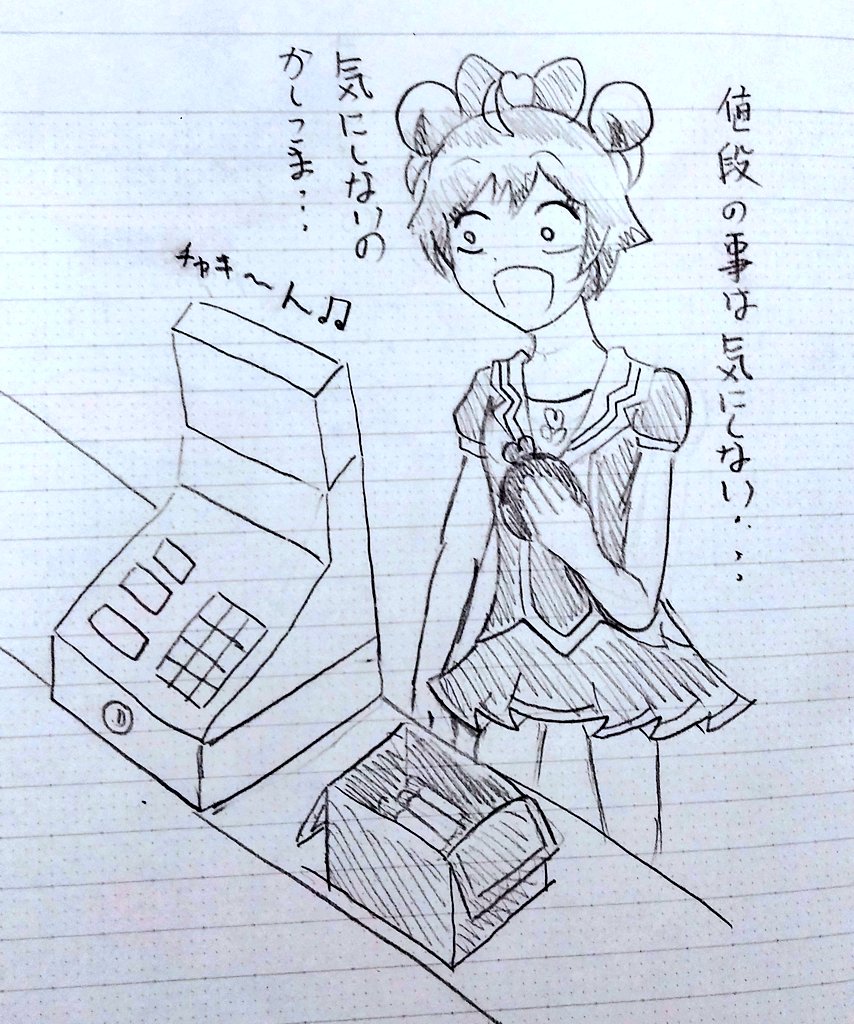 値段の事は気にしない...
気にしないの
かしこま...
チャキ〜ん♫